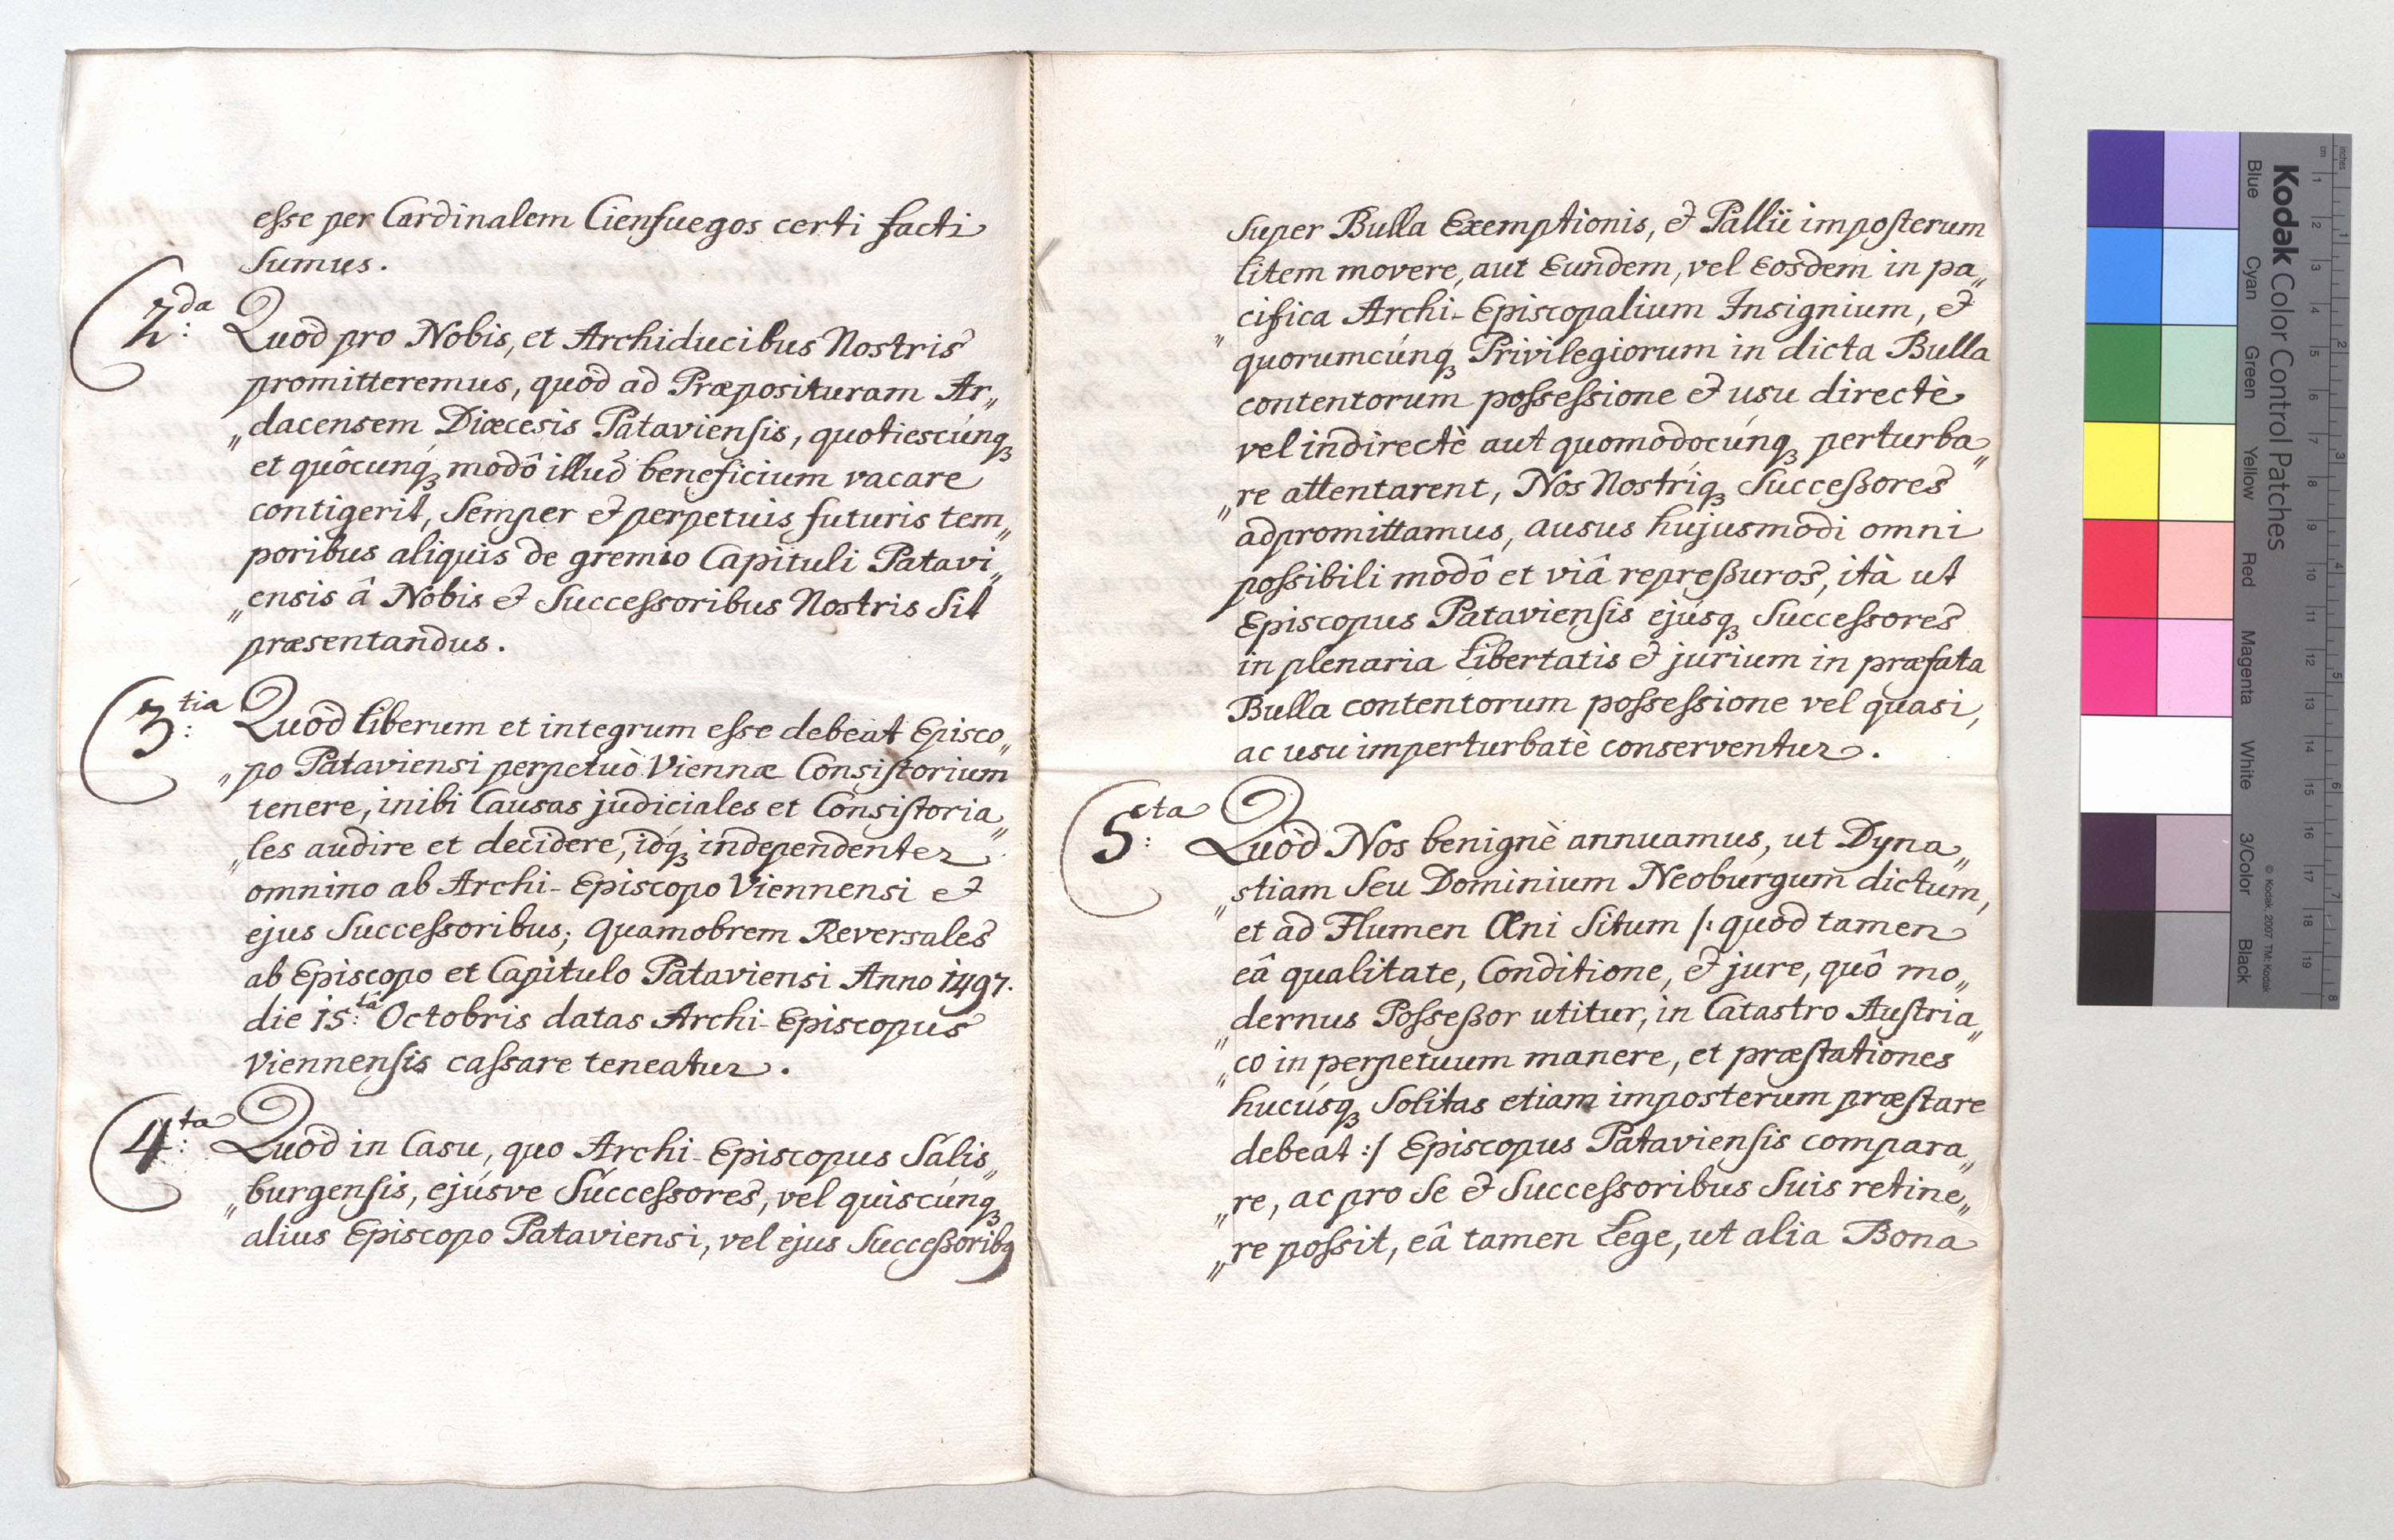 esse per Cardinalem Cienfuegos certi facti
Sumus.
2.da Quòd pro Nobis, et Archiducibus Nostris
promitteremus, quòd ad Præposituram Ar„
„dacensem Diœcesis Pataviensis, quotiescúnqꝫ
et quôcunqꝫ modô illud beneficium vacare
contigerit, Semper & perpetuis futuris tem„
poribus aliquis de gremio Capituli Patavi„
„ensis â Nobis & Successoribus Nostris Sit
præsentandus.
3.tia Quòd Liberum et integrum esse debeat Episco„
„po Pataviensi perpetuò Viennæ Consistorium
tenere, inibi Causas judiciales et Consistoria„
„les audire et decidere, idqꝫ independenter
omnino ab Archi-Episcopo Viennensi &
ejus Successoribus; quamobrem Reversales
ab Episcopo et Capitulo Pataviensi Anno 1497.
die 15.tâ Octobris datas Archi-Episcopus
Viennensis cassare teneatur.
4.ta Quòd in Casu, quo Archi-Episcopus Salis„
„burgensis, ejúsve Súccessores, vel quiscúnqꝫ
alius Episcopo Pataviensi, vel ejus Successoribꝯ
Super Bulla Exemptionis, & Pallii imposterum
Litem movere, aut Eundem, vel Eosdem in pa„
„cifica Archi-Episcopalium Insignium, &
quorumcúnqꝫ Privilegiorum in dicta Bulla
contentorum possessione & usu directè
vel indirectè aut quomodocúnqꝫ perturba„
„re attentarent, Nos Nostríqꝫ Successores
adpromittamus, ausus hujusmodi omni
possibili modô et viâ repressuros, ità ut
Episcopus Pataviensis ejúsqꝫ Successores
in plenaria Libertatis & jurium in præfata
Bulla contentorum possessione vel quasi,
ac usu imperturbatè conserventur.
5.ta Quòd Nos benignè annuamus, ut Dyna„
„stiam Seu Dominium Neoburgum dictum,
et ad Flumen Œni Situm /: quod tamen
eâ qualitate, Conditione, & jure, quô mo„
„dernus Possessor utitur, in Catastro Austria„
„co in perpetuum manere, et præstationes
hucúsqꝫ Solitas etiam imposterum præstare
debeat :/ Episcopus Pataviensis compara„
„re, ac pro Se & Successoribus Suis retine„
„re possit, eâ tamen Lege, ut alia Bona
Kodak Color Control Patches
© Kodak, 2007 TM: Kodak
Blue
Cyan
Green
Yellow
Red
Magenta
White
3/Color
Black
inches
1
2
3
4
5
6
7
8
cm
1
2
3
4
5
6
7
8
9
10
11
12
13
14
15
16
17
18
19